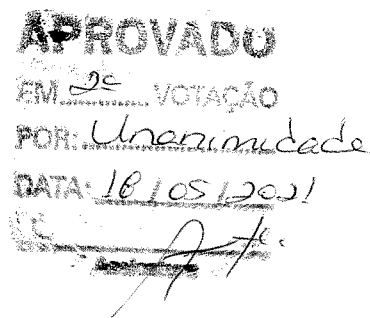 APROVADO
EM 2ª VOTAÇÃO
POR: Unanimidade
DATA: 18 / 05 / 2021